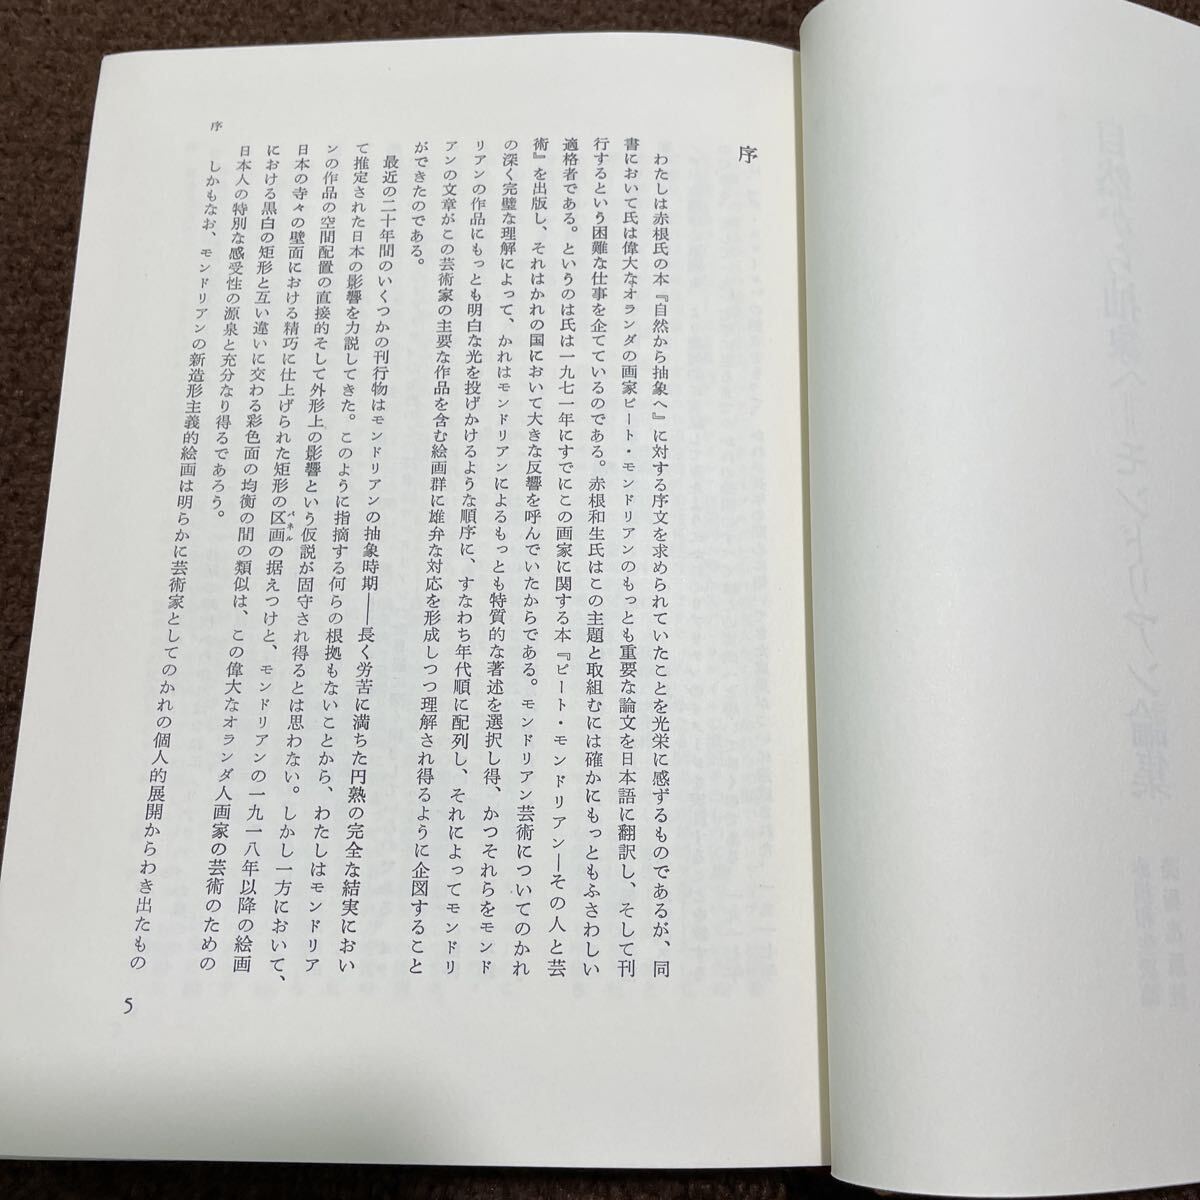 序
わたしは赤根氏の本『自然から抽象へ』に対する序文を求められていたことを光栄に感ずるものであるが、同
書において氏は偉大なオランダの画家ピート・モンドリアンのもっとも重要な論文を日本語に翻訳し、そして刊
行するという困難な仕事を企てているのである。赤根和生氏はこの主題と取組むには確かにもっともふさわしい
適格者である。というのは氏は一九七一年にすでにこの画家に関する本『ピート・モンドリアン―その人と芸
術』を出版し、それはかれの国において大きな反響を呼んでいたからである。モンドリアン芸術についてのかれ
の深く完璧な理解によって、かれはモンドリアンによるもっとも特質的な著述を選択し得、かつそれらをモンド
リアンの作品にもっとも明白な光を投げかけるような順序に、すなわち年代順に配列し、それによってモンドリ
アンの文章がこの芸術家の主要な作品を含む絵画群に雄弁な対応を形成しつつ理解され得るように企図すること
ができたのである。
最近の二十年間のいくつかの刊行物はモンドリアンの抽象時期――長く労苦に満ちた円熟の完全な結実におい
て推定された日本の影響を力説してきた。このように指摘する何らの根拠もないことから、わたしはモンドリア
ンの作品の空間配置の直接的そして外形上の影響という仮説が固守され得るとは思わない。しかし一方において、
日本の寺々の壁面における精巧に仕上げられた矩形の区画パネルの据えつけと、モンドリアンの一九一八年以降の絵画
における黒白の矩形と互い違いに交わる彩色面の均衡の間の類似は、この偉大なオランダ人画家の芸術のための
日本人の特別な感受性の源泉と充分なり得るであろう。
しかもなお、モンドリアンの新造形主義的絵画は明らかに芸術家としてのかれの個人的展開からわき出たもの
序
5
自然から抽象へ
モンドリアン論集